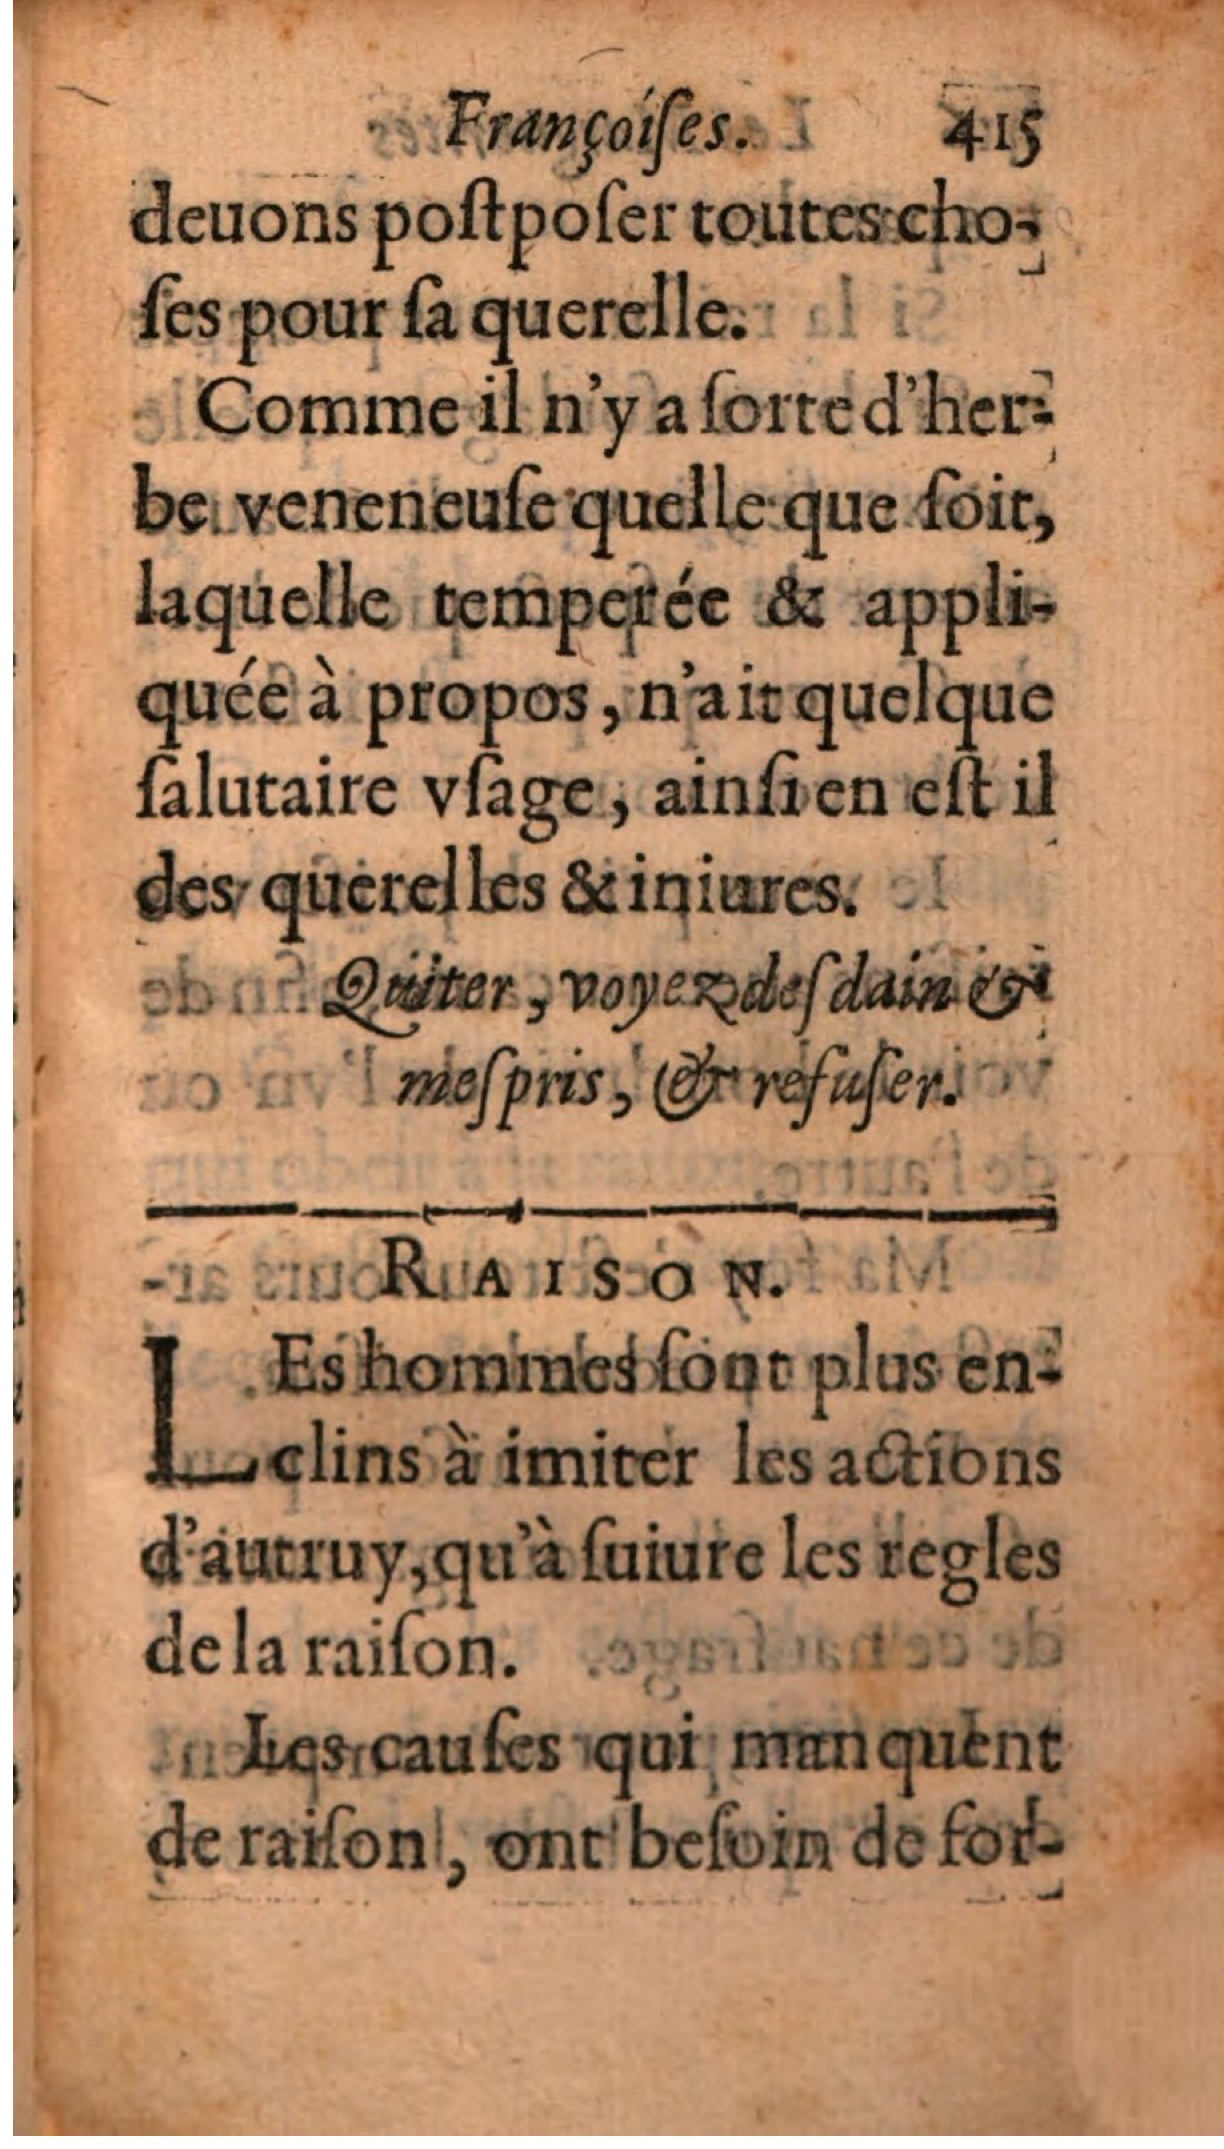 Françoiſes. 415
deuons poſtpoſer toutes cho-
ſes pour ſa querelle.
Comme il n'y a ſorte d'her-
be veneneuſe quelle que ſoit,
laquelle temperée & appli-
quée à propos, n'ait quelque
ſalutaire vſage, ainſi en eſt il
des querelles & iniures.
Quiter, voyez deſdain &
meſpris, & refuſer.
RAISON.
LEs hommes ſont plus en-
clins à imiter les actions
d'autruy, qu'à ſuiure les regles
de la raiſon.
Les cauſes qui manquent
de raiſon, ont beſoin de for-